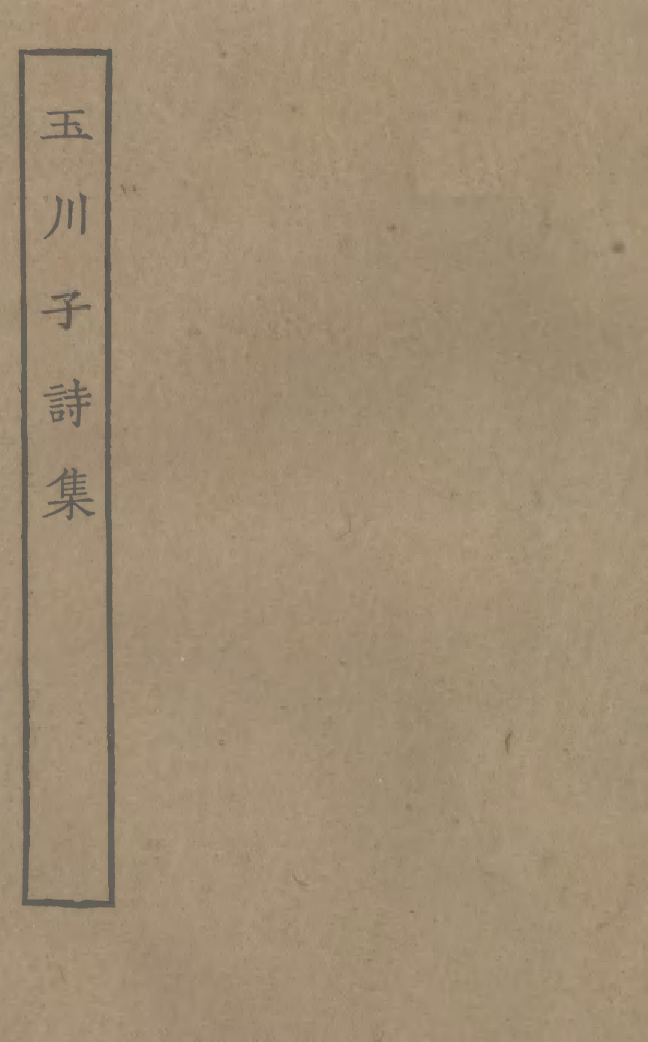 玉川子詩集